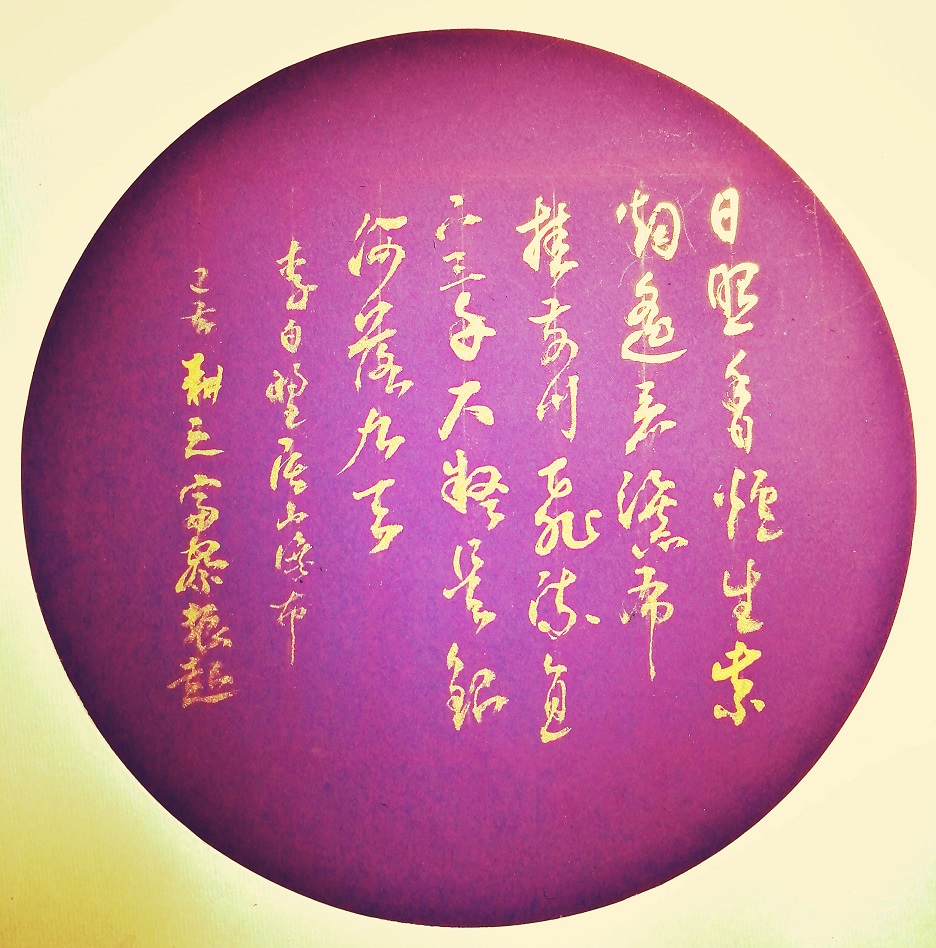 日照香炉生紫
烟遥看瀑布
挂前川飞流直
下三千尺疑是银
河落九天
李白望庐山瀑布
己亥耕黎振起